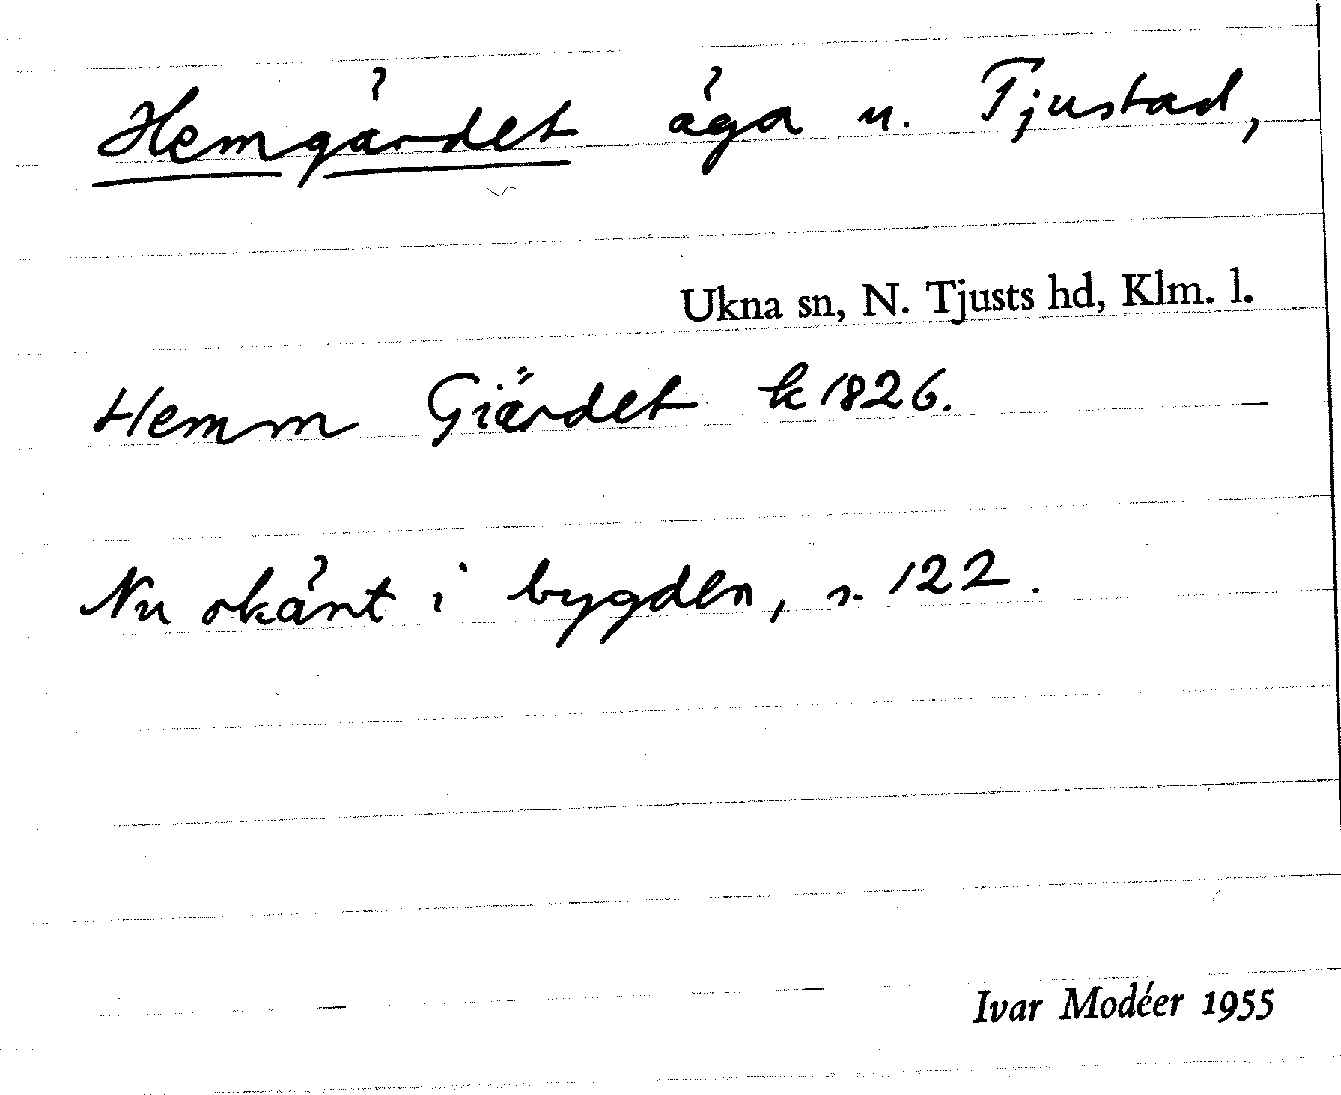 Hemgärdet äga u. Tjustad,
Ukna sn, N. Tjusts hd, Klm. l.
Hemm Giärdet k 1826.
Nu okänt i bygden, s. 122.
Ivar Modéer 1955